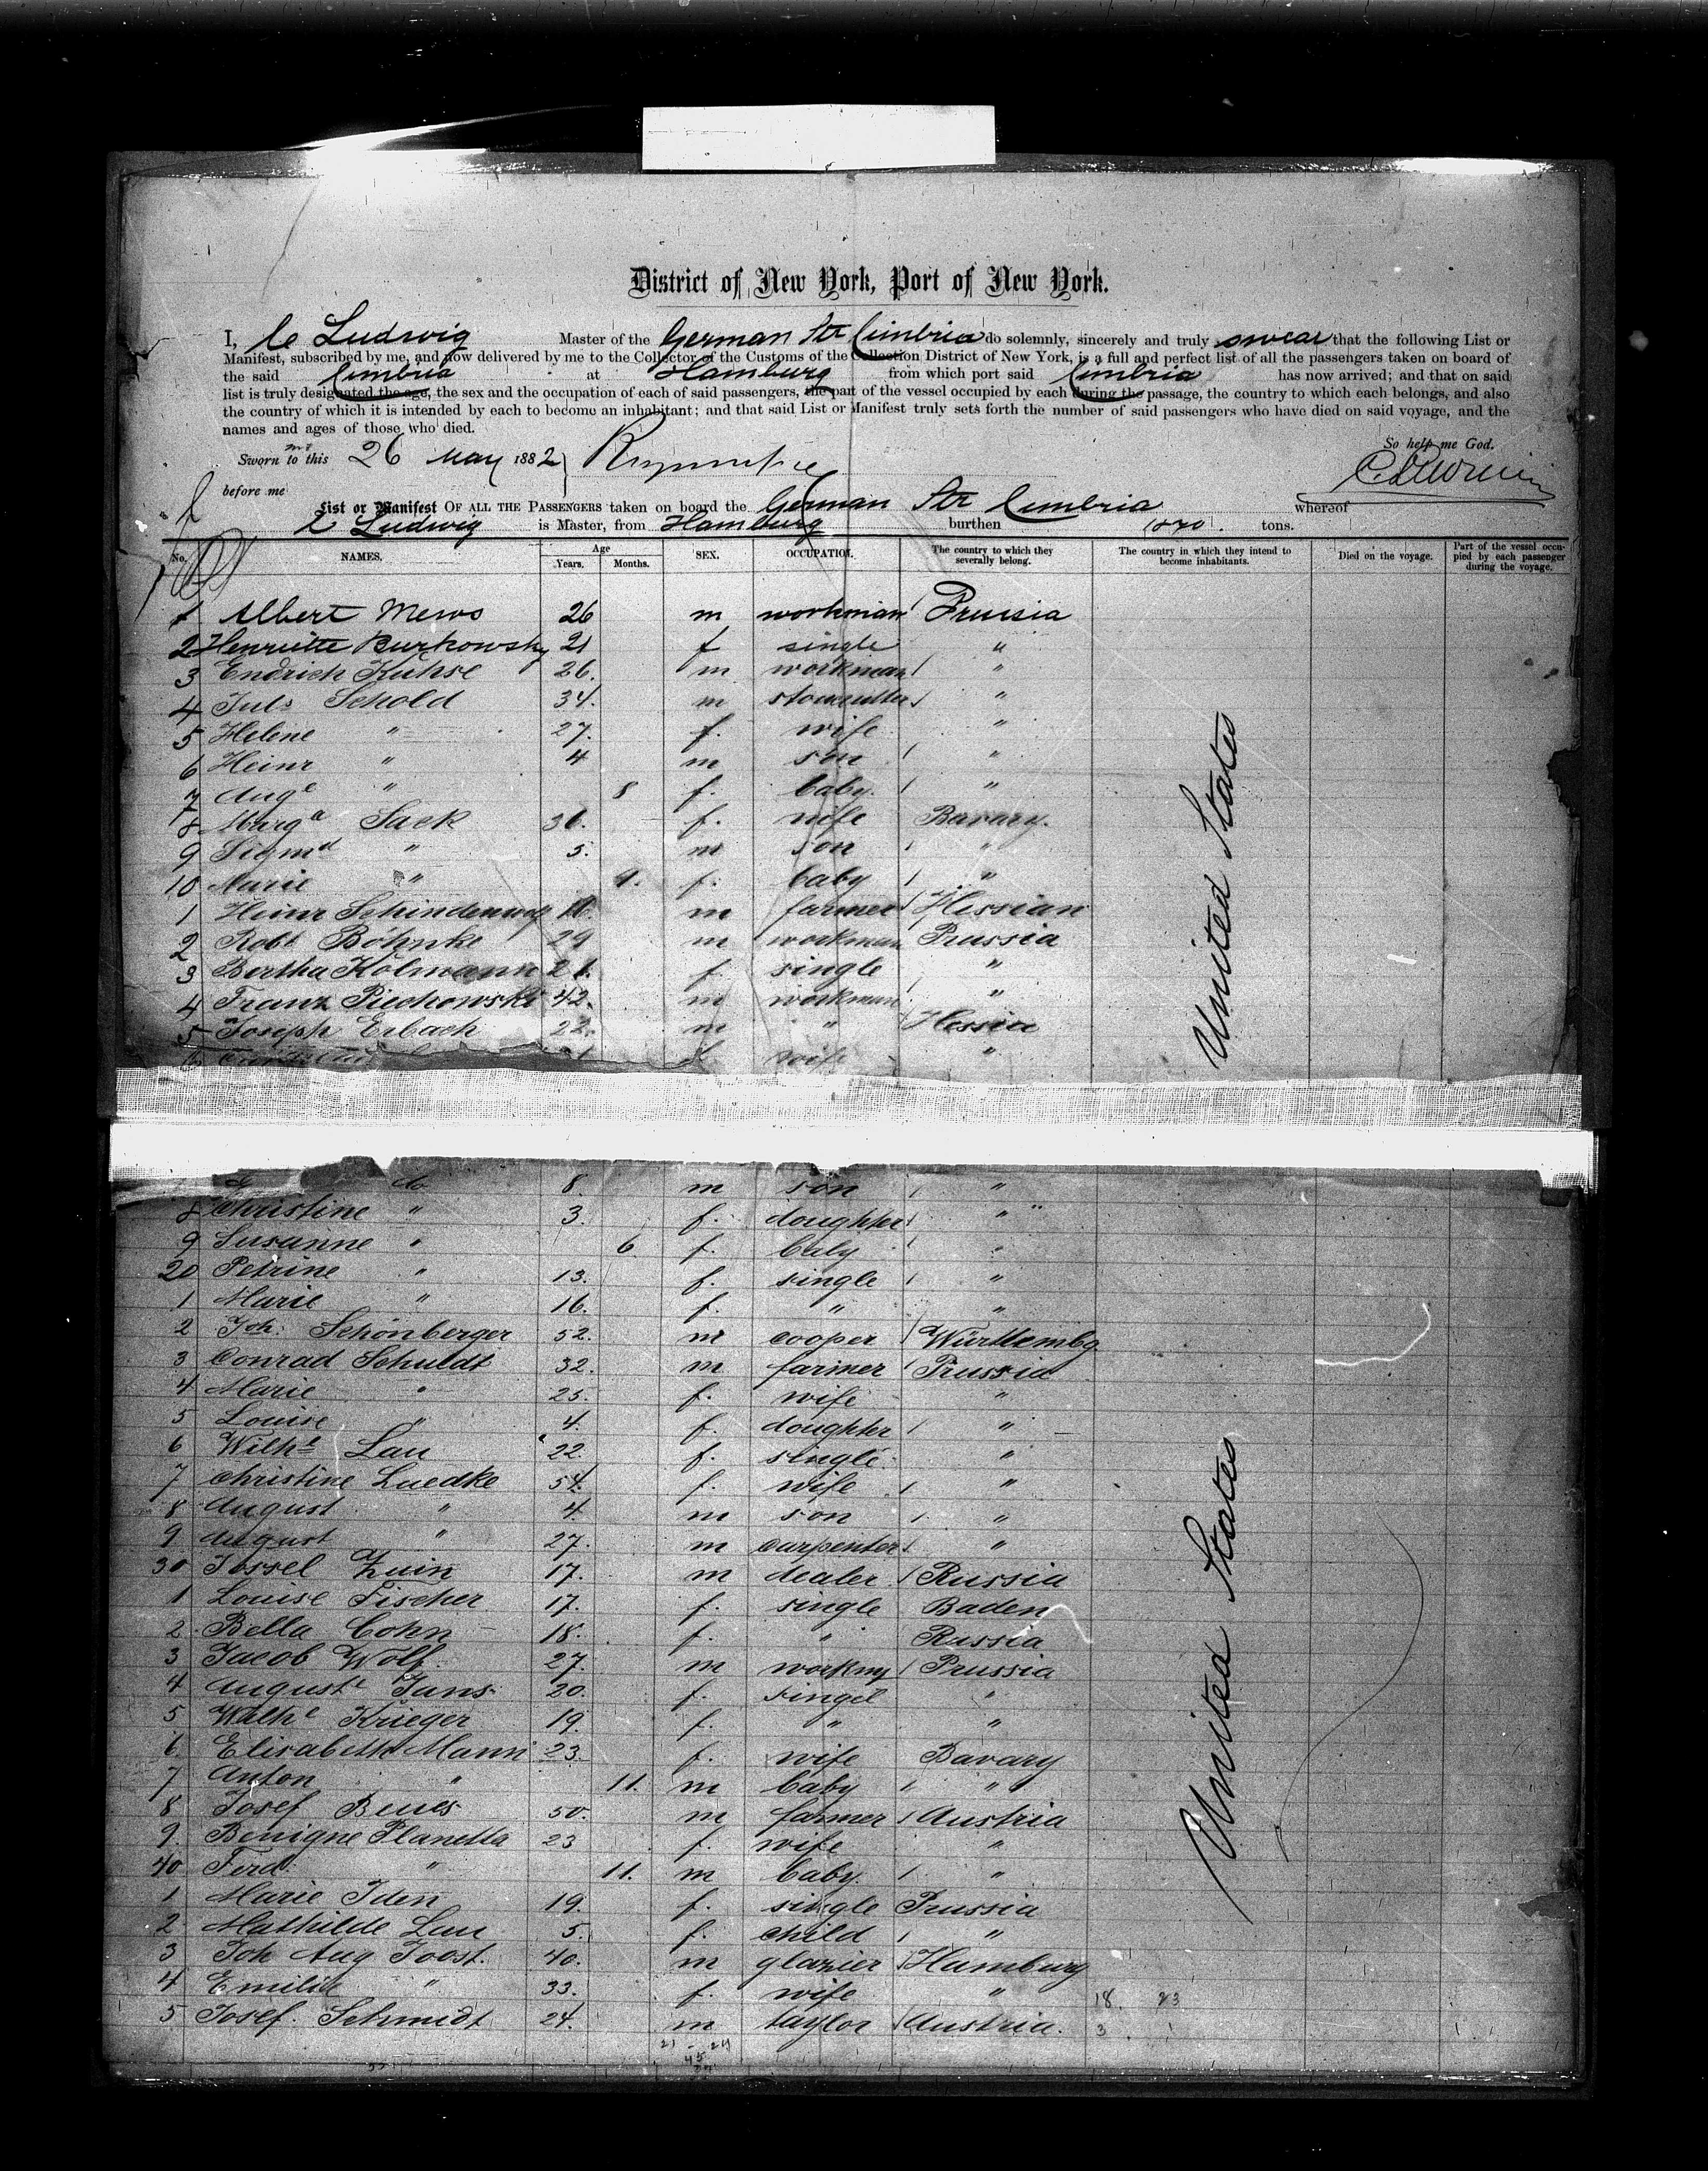 District of New York, Port of New York.
I, C Ludwig Master of the German Str Cimbria do solemnly, sincerely and truly swear that the following List or
Manifest, subscribed by me, and now delivered by me to the Collector of the Customs of the Collection District of New York, is a full and perfect list of all the passengers taken on board of
the said Cimbria at Hamburg from which port said Cimbria has now arrived; and that on said
list is truly designated the age, the sex and the occupation of each of said passengers, the part of the vessel occupied by each during the passage, the country to which each belongs, and also
the country of which it is intended by each to become an inhabitant; and that said List or Manifest truly sets forth the number of said passengers who have died on said voyage, and the
names and ages of those who died.
So help me God.
Sworn to this 26 May 1882
before me
List or Manifest OF ALL THE PASSENGERS taken on board the German Str Cimbria whereof
C Ludwig is Master, from Hamburg burthen tons.
No. NAMES. Age Years. Months. SEX. OCCUPATION. The country to which they severally belong. The country in which they intend to become inhabitants. Died on the voyage. Part of the vessel occupied by each passenger during the voyage.
1 Albert Mews 26 m workman Prussia
2 Henriette Burkowsky 21 f single "
3 Endrich Kuhse 26. m workman "
4 Juls Schold 34. m stonecutter "
5 Helene " 27. f. wife "
6 Heinr " 4 m son "
7 Auge " 8 f. baby. "
8 Marga Sack 36. f. wife Bavary.
9 Sigmd " 5. m son "
10 Marie " 9. f. baby "
1 Heinr 16. m farmer Hessian
2 Robt Böhnke 29 m workman Prussia
3 Bertha Kolmann 21. f single "
4 Franz Piechowski 42. m workman "
5 Joseph Erbach 22. m " Hessia
wife "
8. m son "
8 Christine " 3. f. doughter "
9 Susanne " 6 f. baby "
20 Petrine " 13. f. single "
1 Marie " 16. f. " "
2 Joh. Schönberger 52. m cooper Württembg
3 Conrad Schuldt 32. m farmer Prussia
4 Marie " 25. f. wife "
5 Louise " 4. f. doughter "
6 Wilhe Lau 22. f. single "
7 Christine Luedke 54. f. wife "
8 August " 4. m son "
9 August " 27. m carpenter "
30 Jossel Zuin 17. m dealer Russia
1 Louise Fischer 17. f. single Baden
2 Bella Cohn 18. f. " Russia
3 Jacob Wolf 27. m workng Prussia
4 Auguste Jans 20. f. singel "
5 Wilhe Krieger 19. f. " "
6 Elisabeth Mann 23. f. wife Bavary
7 Anton " 11. m baby " "
8 Josef Benes 50. m farmer Austria
9 Benigne Planetta 23 f. wife "
40 Ferd. " 11. m baby. "
1 Marie Iden 19. f. single Prussia
2 Mathilde Lau 5. f. child "
3 Joh Aug Joost. 40. m glazier Hamburg
4 Emilie " 33. f. wife "
5 Josef. Schmidt 24. m taylor Austria.
United States
United States